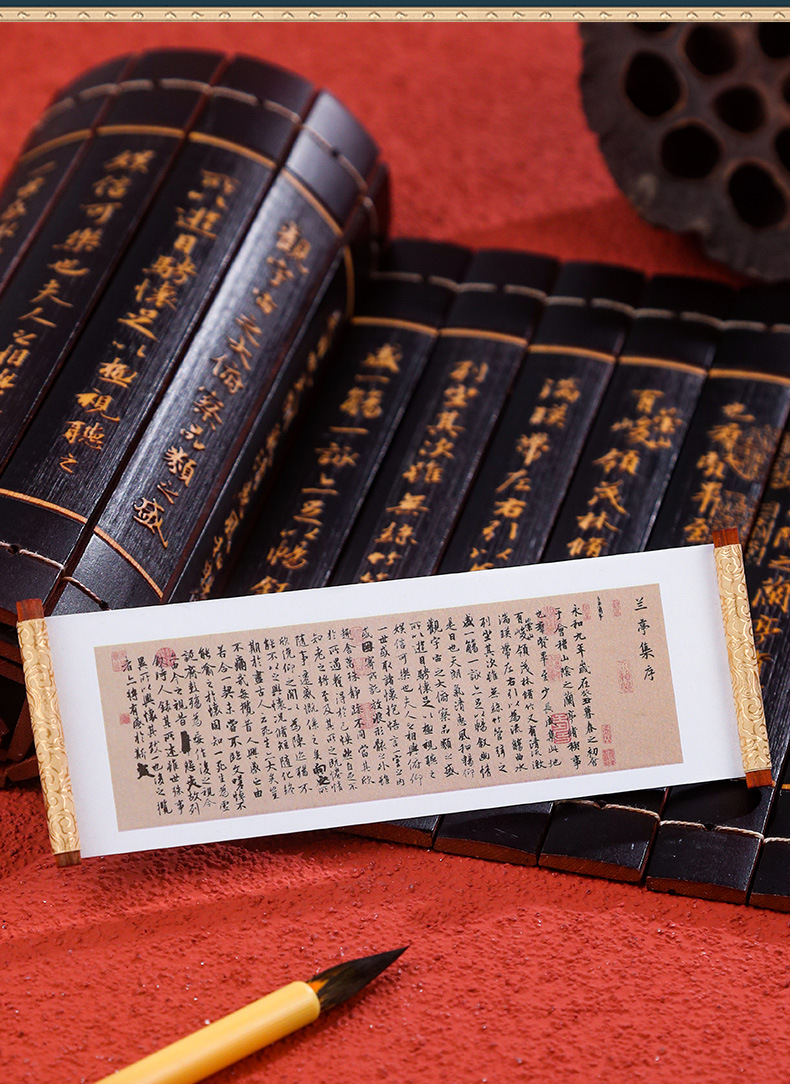 觀宇宙之大俯察品類之盛
所以遊目騁懷足以極視聽之
娛信可樂也夫人之相與
也羣賢畢至
崇山
有峻領茂林脩
湍暎帶左右引以
列坐其次雖無絲竹
盛一觴一詠亦足以暢敘
兰亭集序
永和九年歲在癸丑暮春之初會
于會稽山陰之蘭亭脩稧事
也羣賢畢至少長咸集此地
崇山
有峻領茂林脩竹又有清流激
湍暎帶左右引以為流觴曲水
列坐其次雖無絲竹管弦之
盛一觴一詠亦足以暢敘幽情
是日也天朗氣清惠風和暢仰
觀宇宙之大俯察品類之盛
所以遊目騁懷足以極視聽之
娛信可樂也夫人之相與俯仰
一世或取諸懷抱悟言一室之內
或因寄所託放浪形骸之外雖
趣舍萬殊靜躁不同當其欣
於所遇蹔得於己怏然自足不
知老之將至及其所之既惓情
隨事遷感慨係之矣向之所
欣俛仰之閒以為陳迹猶不
能不以之興懷況脩短隨化終
期於盡古人云死生亦大矣豈
不痛哉每攬昔人興感之由
若合一契未嘗不臨文嗟悼不
能喻之於懷固知一死生為虛
誕齊彭殤為妄作後之視今
亦由今之視昔悲夫故列
敘時人錄其所述雖世殊事
異所以興懷其致一也後之攬
者亦將有感於斯文